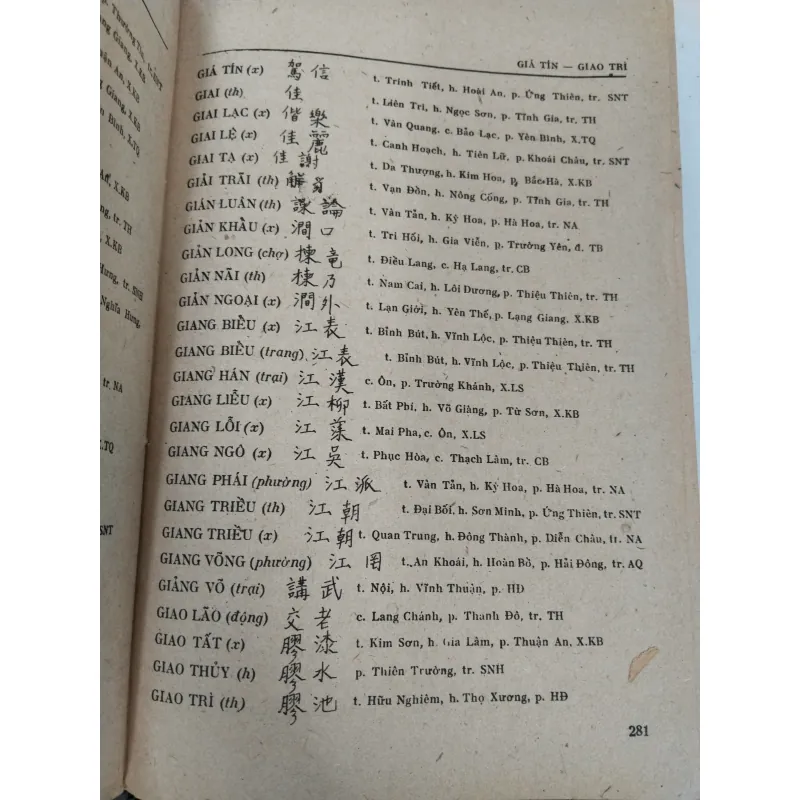 GIÁ TÍN — GIAO TRÌ
GIÁ TÍN (x) 駕信 t. Trinh Tiết, h. Hoài An, p. Ứng Thiên, tr. SNT
GIAI (th) 佳 t. Liên Trì, h. Ngọc Sơn, p. Tĩnh Gia, tr. TH
GIAI LẠC (x) 偕樂 t. Vân Quang, c. Bảo Lạc, p. Yên Bình, X.TQ
GIAI LỆ (x) 佳麗 t. Canh Hoạch, h. Tiên Lữ, p. Khoái Châu, tr. SNT
GIAI TẠ (x) 佳謝 t. Da Thượng, h. Kim Hoa, p. Bắc Hà, X.KB
GIẢI TRÃI (th) 解豸 t. Vạn Đồn, h. Nông Cống, p. Tĩnh Gia, tr. TH
GIÁN LUÂN (th) 諫論 t. Vân Tẩn, h. Kỳ Hoa, p. Hà Hoa, tr. NA
GIẢN KHẨU (x) 澗口 t. Tri Hối, h. Gia Viễn, p. Trường Yên, đ. TB
GIẢN LONG (chợ) 楝竜 t. Điều Lang, c. Hạ Lang, tr. CB
GIẢN NÃI (th) 楝乃 t. Nam Cai, h. Lôi Dương, p. Thiệu Thiên, tr. TH
GIẢN NGOẠI (x) 澗外 t. Lạn Giới, h. Yên Thế, p. Lạng Giang, X.KB
GIANG BIỂU (x) 江表 t. Bỉnh Bút, h. Vĩnh Lộc, p. Thiệu Thiên, tr. TH
GIANG BIỂU (trang) 江表 t. Bỉnh Bút, h. Vĩnh Lộc, p. Thiệu Thiên, tr. TH
GIANG HÁN (trại) 江漢 c. Ôn, p. Trường Khánh, X.LS
GIANG LIỄU (x) 江柳 t. Bất Phí, h. Võ Giàng, p. Từ Sơn, X.KB
GIANG LỖI (x) 江 t. Mai Pha, c. Ôn, X.LS
GIANG NGÔ (x) 江吳 t. Phục Hòa, c. Thạch Lâm, tr. CB
GIANG PHÁI (phường) 江派 t. Vân Tẩn, h. Kỳ Hoa, p. Hà Hoa, tr. NA
GIANG TRIỀU (th) 江朝 t. Đại Bối, h. Sơn Minh, p. Ứng Thiên, tr. SNT
GIANG TRIỀU (x) 江朝 t. Quan Trung, h. Đông Thành, p. Diễn Châu, tr. NA
GIANG VÕNG (phường) 江罔 t. An Khoái, h. Hoành Bồ, p. Hải Đông, tr. AQ
GIẢNG VÕ (trại) 講武 t. Nội, h. Vĩnh Thuận, p. HĐ
GIAO LÃO (động) 交老 c. Lang Chánh, p. Thanh Đô, tr. TH
GIAO TẤT (x) 膠漆 t. Kim Sơn, h. Gia Lâm, p. Thuận An, X.KB
GIAO THỦY (h) 膠水 p. Thiên Trường, tr. SNH
GIAO TRÌ (th) 膠池 t. Hữu Nghiêm, h. Thọ Xương, p. HĐ
281